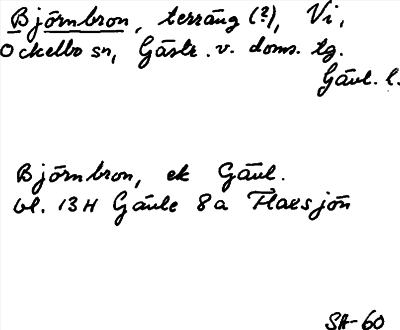 Björnbron, terräng (?), Vi,
Ockelbo sn, Gästr. v. doms. tg.
Gävl. l.
Björnbron, ek Gävl.
bl. 13H Gävle 8a Flaesjön
SA-60